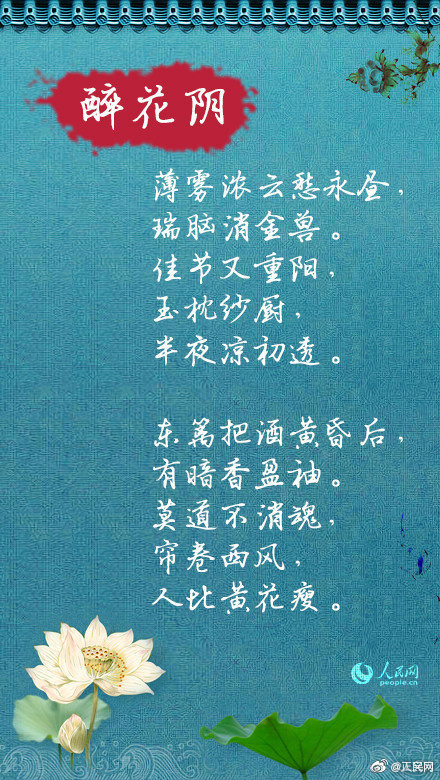 醉花阴
薄雾浓云愁永昼，
瑞脑消金兽。
佳节又重阳，
玉枕纱厨，
半夜凉初透。
东篱把酒黄昏后，
有暗香盈袖。
莫道不消魂，
帘卷西风，
人比黄花瘦。
人民网
people.cn
@正民网